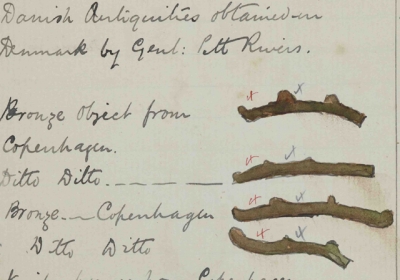 Danish Antiquities obtained in
Denmark by Genl: Pitt Rivers.
Bronze Object from
Copenhagen.
Ditto Ditto. _ _ _ _ _
Bronze. _ Copenhagen
Ditto Ditto
Copenhagen